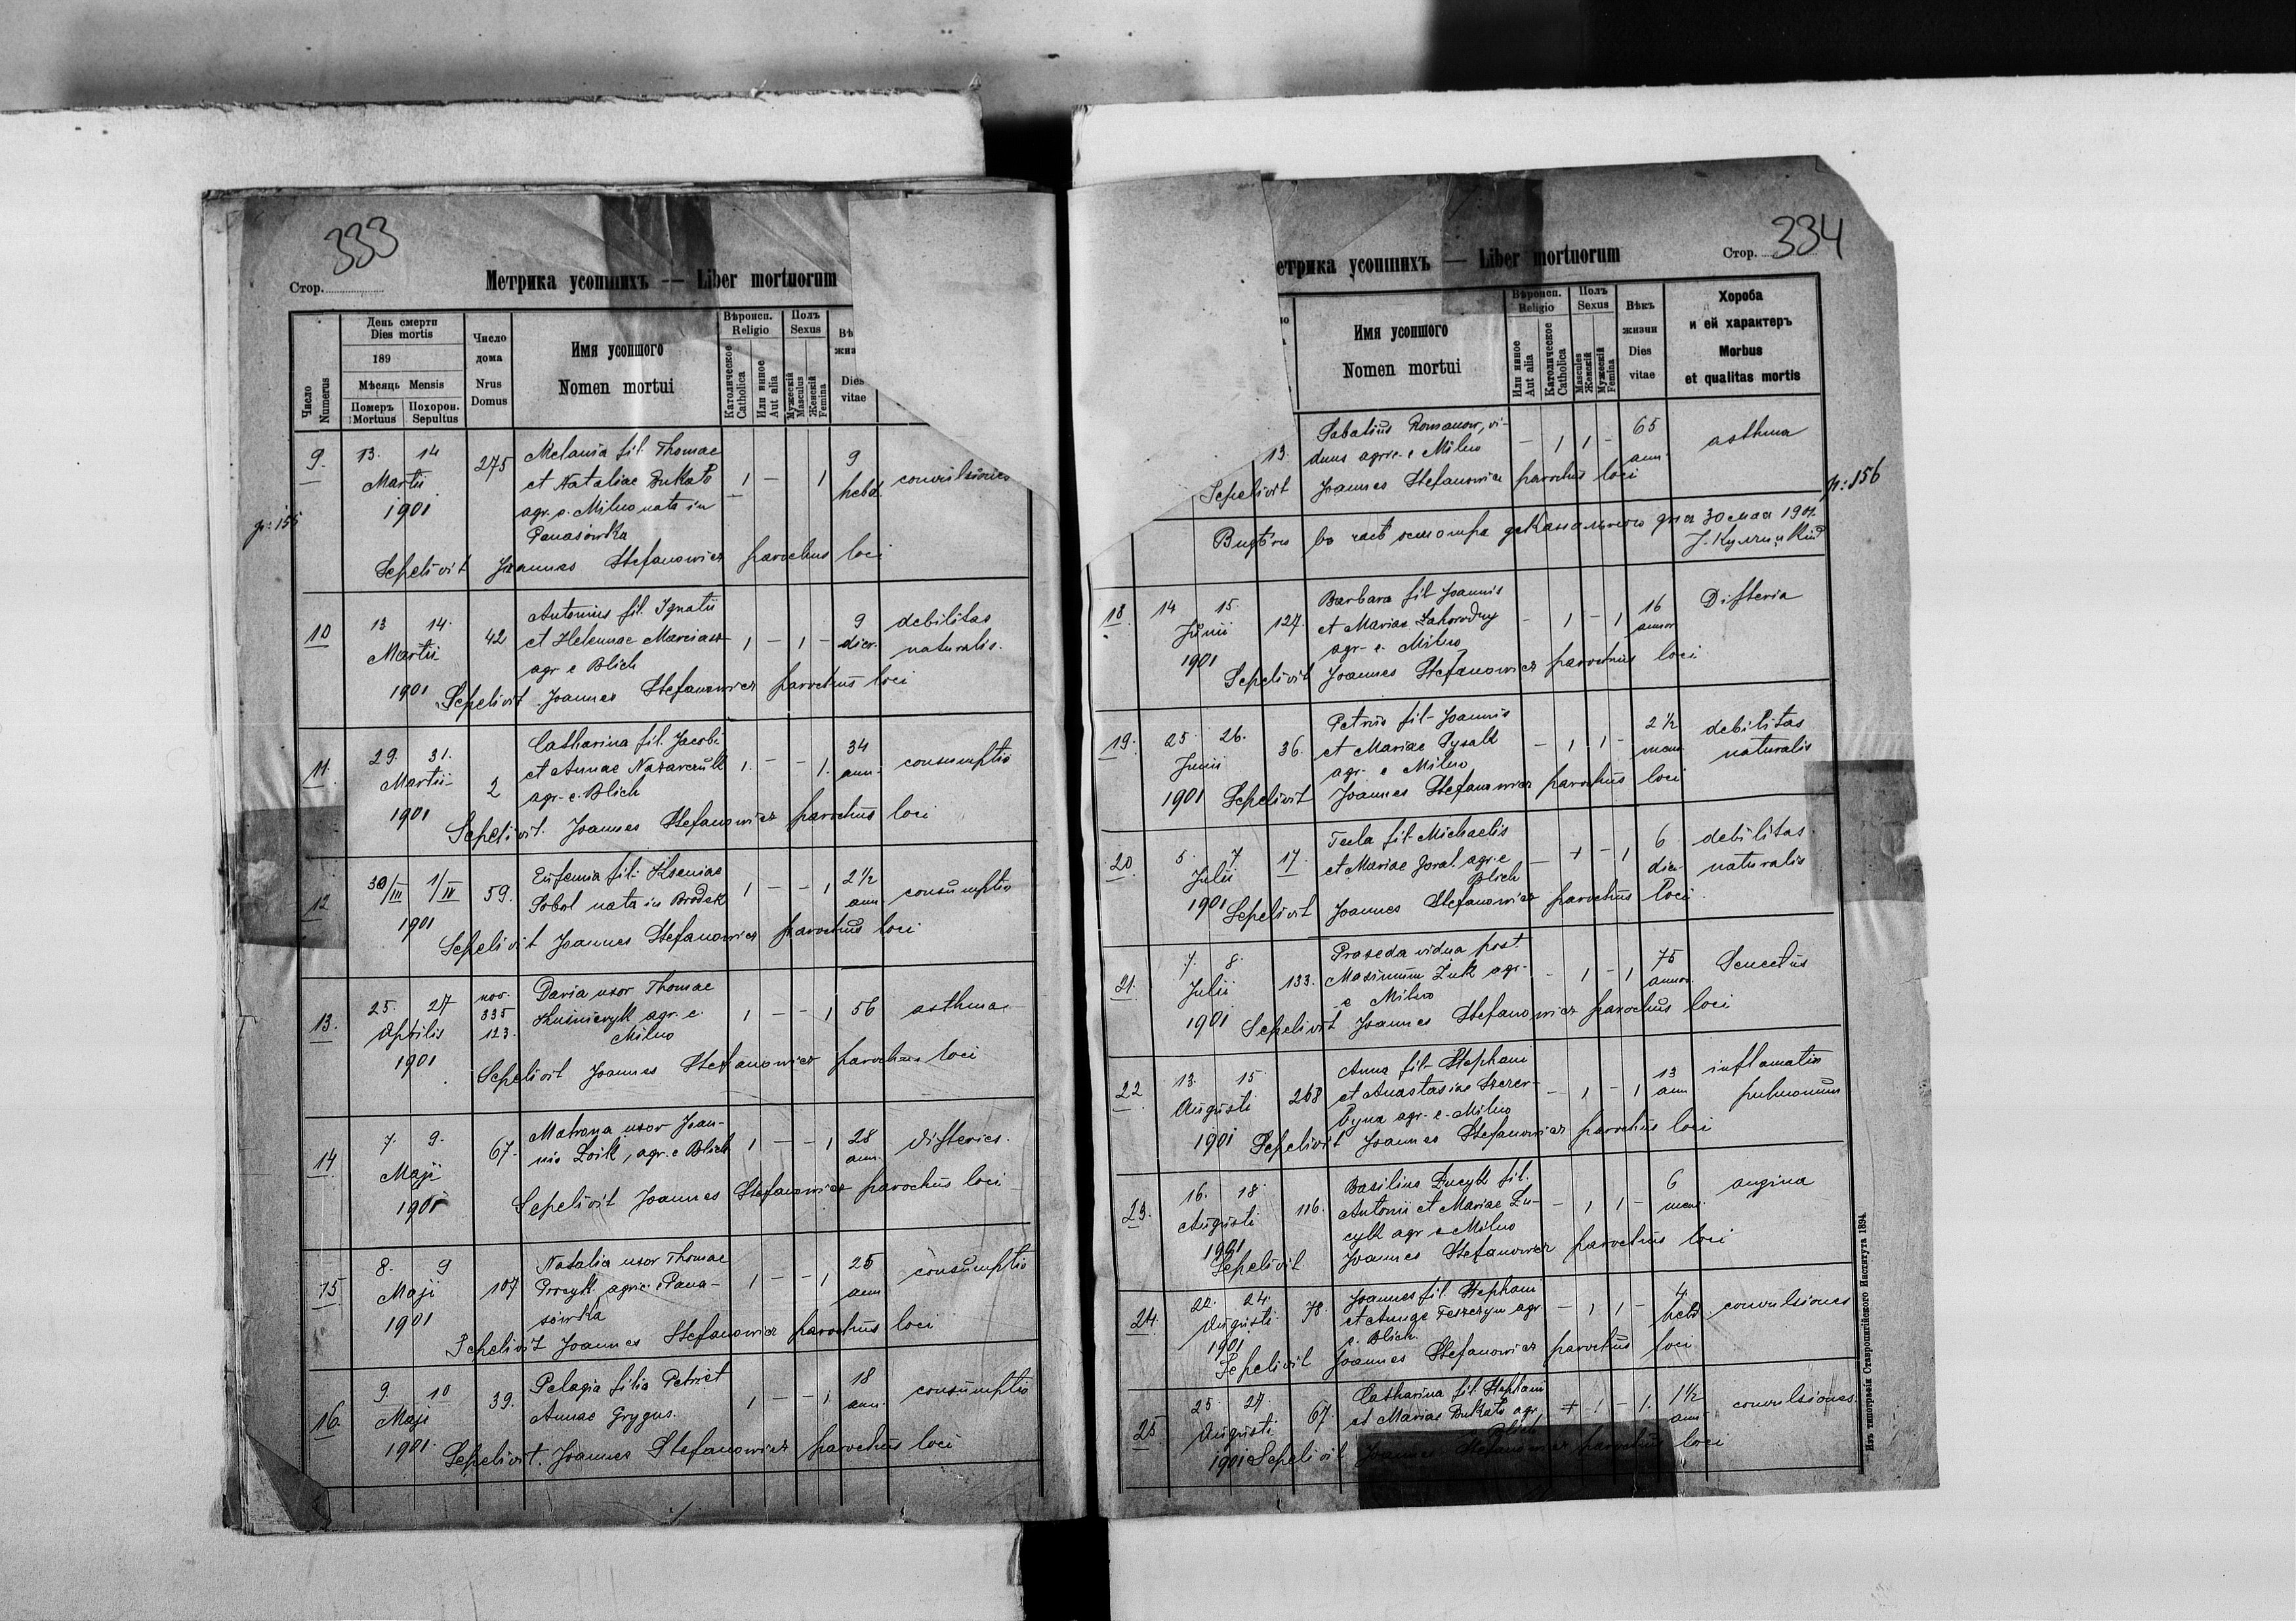 333
Стор.
Метрика усопшихъ — Liber mortuorum
Число
Numerus
День смерти
Dies mortis
189
Мѣсяць Mensis
Померъ
Mortuus
Похорон.
Sepultus
Число
дома
Nrus
Domus
Имя усопшого
Nomen mortui
Вѣроисп.
Religio
Католическое
Catholica
Или инное
Aut alia
Полъ
Sexus
Мужескій
Masculus
Женскій
Femina
Dies
vitae
9. 13. 14 Martii 1901 275
Melania fil. Thomae
et Nataliae Bukata
agr. e. Milno nata in
Panasówka
1 — 1 9 hebd. convulsiones
p: 155
Sepelivit Joannes Stefanowicz parochus loci
10 13 14. Martii 1901 42
Antonius fil. Ignatii
et Helennae Marciasz
agr e Blich
1 — 1 — 9 dier. debilitas
naturalis.
Sepelivit Joannes Stefanowicz parochus loci
11. 29. 31. Martii 1901 2
Catharina fil. Jacobi
et Annae Nazarczuk
agr- e. Blich
1. — — 1. 34 ann. consumptio
Sepelivit. Joannes Stefanowicz parochus loci
12 30/III 1/IV 1901 59.
Eufemia fil. Kseniae
Sobol nata in Brodek
1 — — 1 2½ ann. consumptio
Sepelivit Joannes Stefanowicz parochus loci
13. 25. 27 Aprilis 1901 nov. 335 123.
Daria uxor Thomae
Kuśnieryk agr. e.
Milno
1 — — 1 56 asthma
Sepelivit Joannes Stefanowicz parochus loci
14 7. 9. Maji 1901 67.
Matrona uxor Joan-
nis Zoik, agr. e Blich
1 — — 1 28 ann. difterics.
Sepelivit Joannes Stefanowicz parochus loci
15 8. 9 Maji 1901 107
Natalia uxor Thomae
agr. e Pana-
sówka
1 — — 1 25 ann consumptio
Sepelivit Joannes Stefanowicz parochus loci
16. 9. 10 Maji 1901. 39.
Pelagia filia Petri et
Annae Grygus.
1 — — 1 18 ann. consumptio
Sepelivit. Joannes Stefanowicz parochus loci
334
етрика усопшихъ — Liber mortuorum
Стор.
Имя усопшого
Nomen mortui
Вѣроисп.
Religio
Или инное
Aut alia
Католическое
Catholica
Полъ
Sexus
Masculus
Женскій
Мужескій
Femina
Вѣкъ
жизни
Dies
vitae
Хороба
и ей характеръ
Morbus
et qualitas mortis
13.
Sabatius Romanow, vi-
duus agr. e. Milno
— 1 1 — 65 ann. asthma
Sepelivit Joannes Stefanowicz parochus loci
p: 156
30 мая 1901.
18. 14 15. Junii 1901 127.
Barbara fil Joannis
et Mariae Zahorodny
agr- e. Milno
— 1 — 1 16 annor Difteria
Sepelivit Joannes Stefanowicz parochus loci
19. 25. 26. Junii 1901 36.
Petrus fil- Joannis
et Mariae Pysak
agr. e Milno
— 1 1 — 2½ mens. debilitas
naturalis
Sepelivit Joannes Stefanowicz parochus loci
20. 5. 7 Julii 1901 17.
Tecla fil- Michaelis
et Mariae Goral agr. e
Blich
— + — 1 6 dier debilitas
naturalis
Sepelivit Joannes Stefanowicz parochus loci.
21. 7. 8. Julii 1901 133.
Praseda vidua post.
Maximum Żuk agr-
e Milno
— 1 — 1 75 annor. Senectus
Sepelivit Joannes Stefanowicz parochus loci
22 13. 15 Augusti 1901 268
Anna fil- Stephani
et Anastasiae Szczer-
byna agr- e- Milno
— 1 — 1 13 ann inflamatio
pulmonum
Sepelivit Joannes Stefanowicz parochus loci
23. 16. 18. Augusti 1901 116.
Basilius Ducyk fil.
Antonii et Mariae Du-
cyk agr e Milno
— 1 1 — 6 mens. angina
Sepelivit. Joannes Stefanowicz parochus loci
24. 22. 24. Augusti 1901 78.
Joannes fil. Stephani
et Annae Teszczyn agr
e. Blich.
— 1 1 — 4. hebd convulsiones
Sepelivit Joannes Stefanowicz parochus loci
25 25. 27. Augusti 1901 67.
Catharina fil Stephani
et Mariae Bukata agr.
Blich
+ 1 — 1. 1½ ann convulsiones.
Sepelivit Joannes Stefanowicz parochus loci
Изъ типографіи Ставропигійского Института 1894.